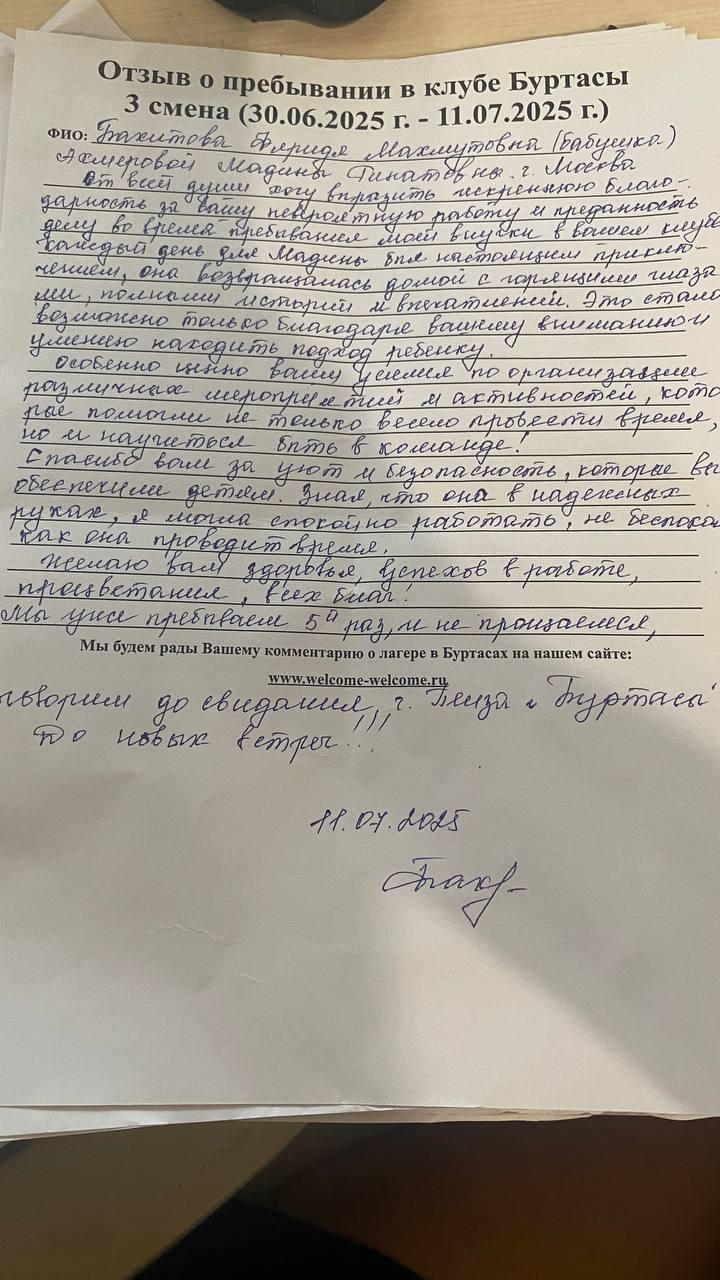 Отзыв о пребывании в клубе Буртасы
3 смена (30.06.2025 г. - 11.07.2025 г.)
ФИО: Бахитова Фярида Махмутовна (бабушка)
Ахмеровой Мадины Тинатовны г. Москва
От всей души хочу выразить искреннюю благо-
дарность за вашу невероятную работу и преданность
делу во время пребывания моей внучки в вашем клубе
Каждый день для Мадины был настоящим приклю-
чением, она возвращалась домой с горящими глаза
ми, полными историй и впечатлений. Это стало
возможно только благодаря вашему вниманию и
умению находить подход ребенку.
Особенно ценно ваши усилия по организации
различных мероприятий и активностей, кото
рые помогли не только весело провести время,
но и научиться быть в команде!
Спасибо вам за уют и безопасность, которые вы
обеспечили детям. Зная, что она в надежных
руках, я могла спокойно работать, не беспокоя
как она проводит время.
Желаю вам здоровья, успехов в работе,
процветания, всех благ!
Мы уже пребываем 5й раз, и не прощаемся,
Мы будем рады Вашему комментарию о лагере в Буртасах на нашем сайте:
www.welcome-welcome.ru
говорим до свидания, г. Пенза и "Буртасы"
До новых встреч!!!
11.07.2025
Бах